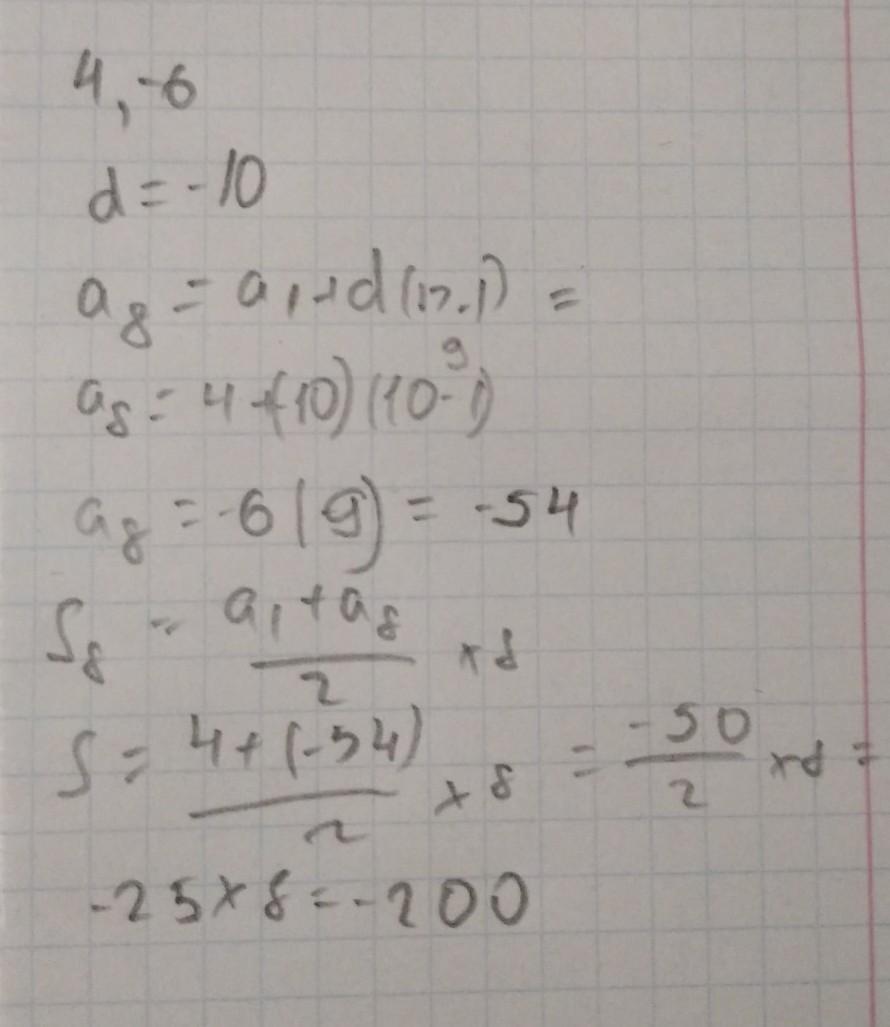 4, -6
d = -10
a8 = a1 + d(n-1) =
9
a8 = 4 + (-10)(10-1)
a8 = -6(9) = -54
S8 = (a1 + a8)/2 × 8
S = (4 + (-54))/2 × 8 = -50/2 × 8 =
-25 × 8 = -200